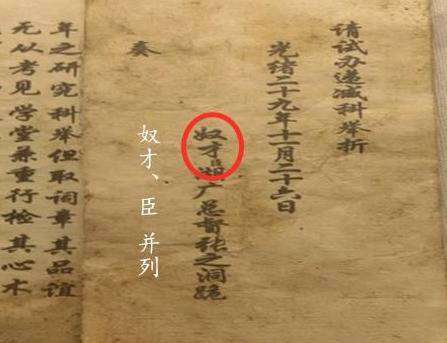 请试办递减科举折
光绪二十九年十一月二十六日
奴才臣湖广总督张之洞跪
奴才、臣 并列
奏
年之研究科举但取词章其品谊
无从考见学堂兼重行检其心术